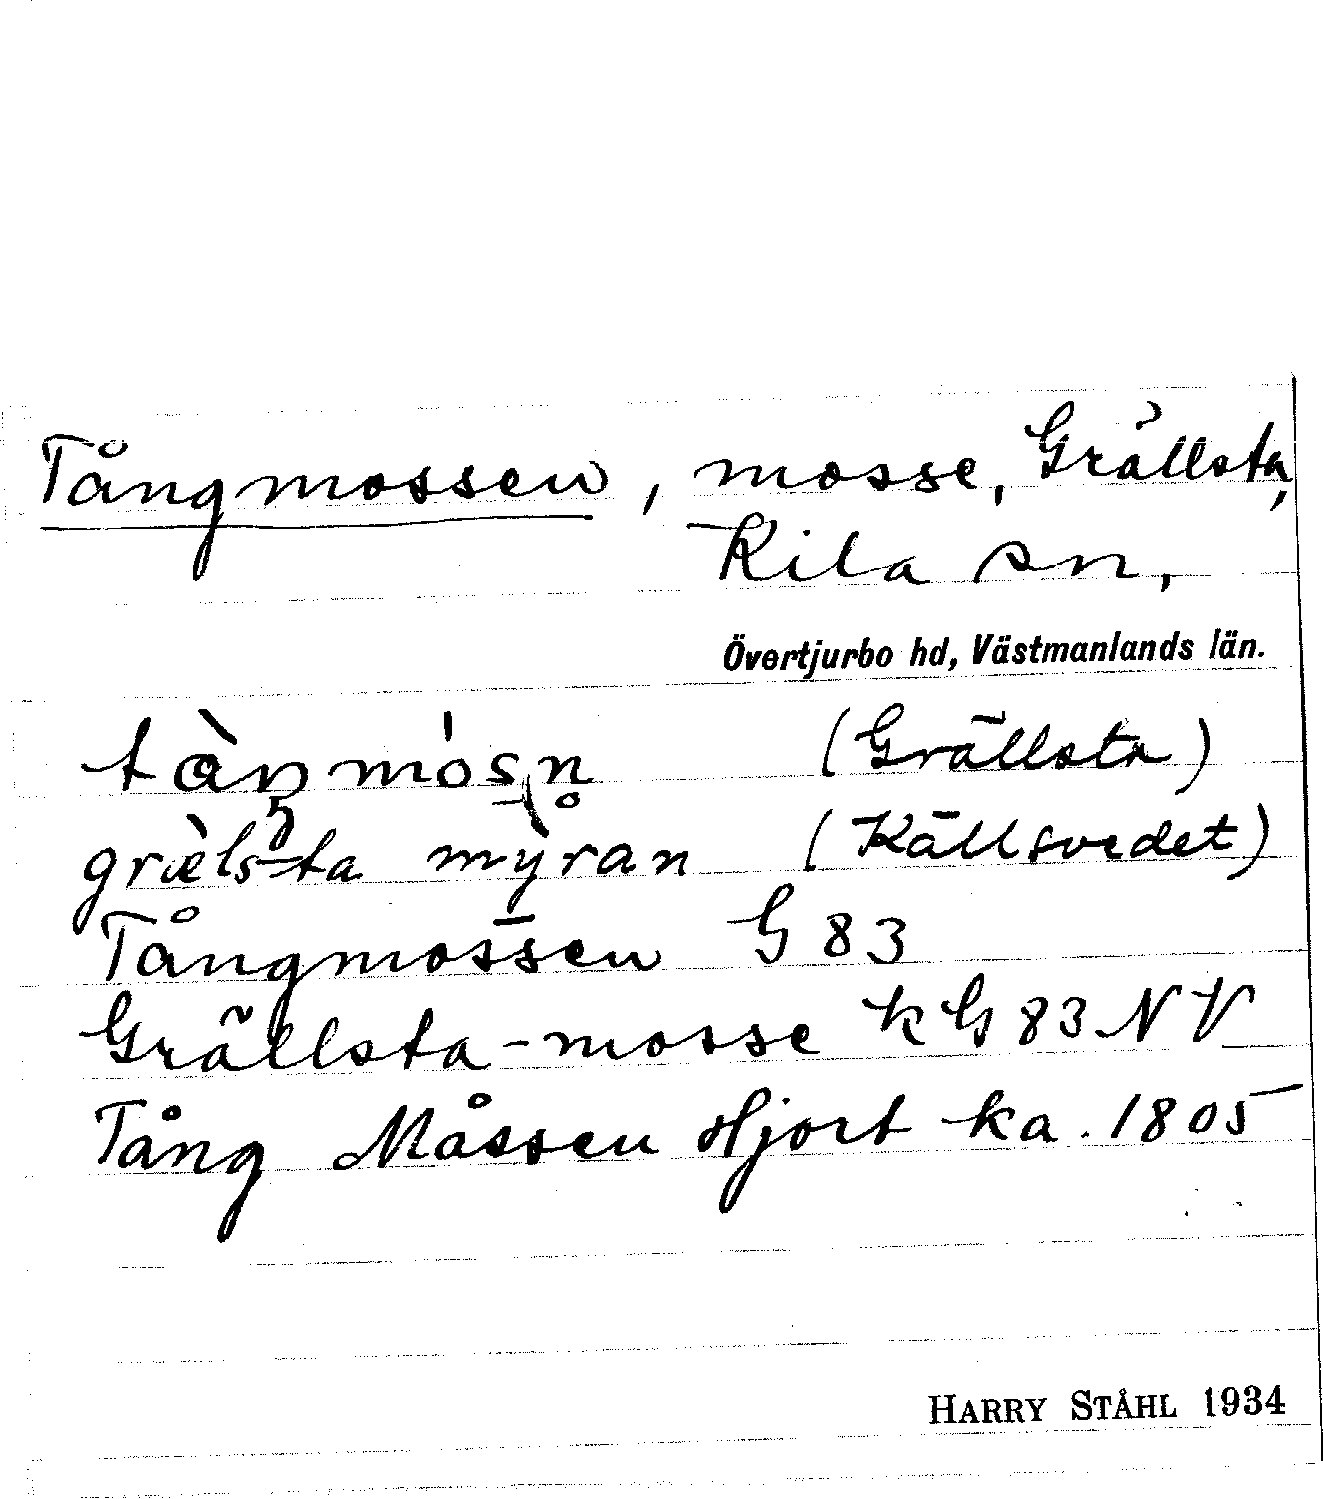 Tångmossen, mosse, Grällsta,
Kila sn,
Övertjurbo hd, Västmanlands län.
tàŋmósn̥ (Grällsta)
grὲlsta mỳran (Källsvedet)
Tångmossen G 83
Grällsta-mosse k G 83 NV
Tång Måssen Hjort ka. 1805
HARRY STÅHL 1934